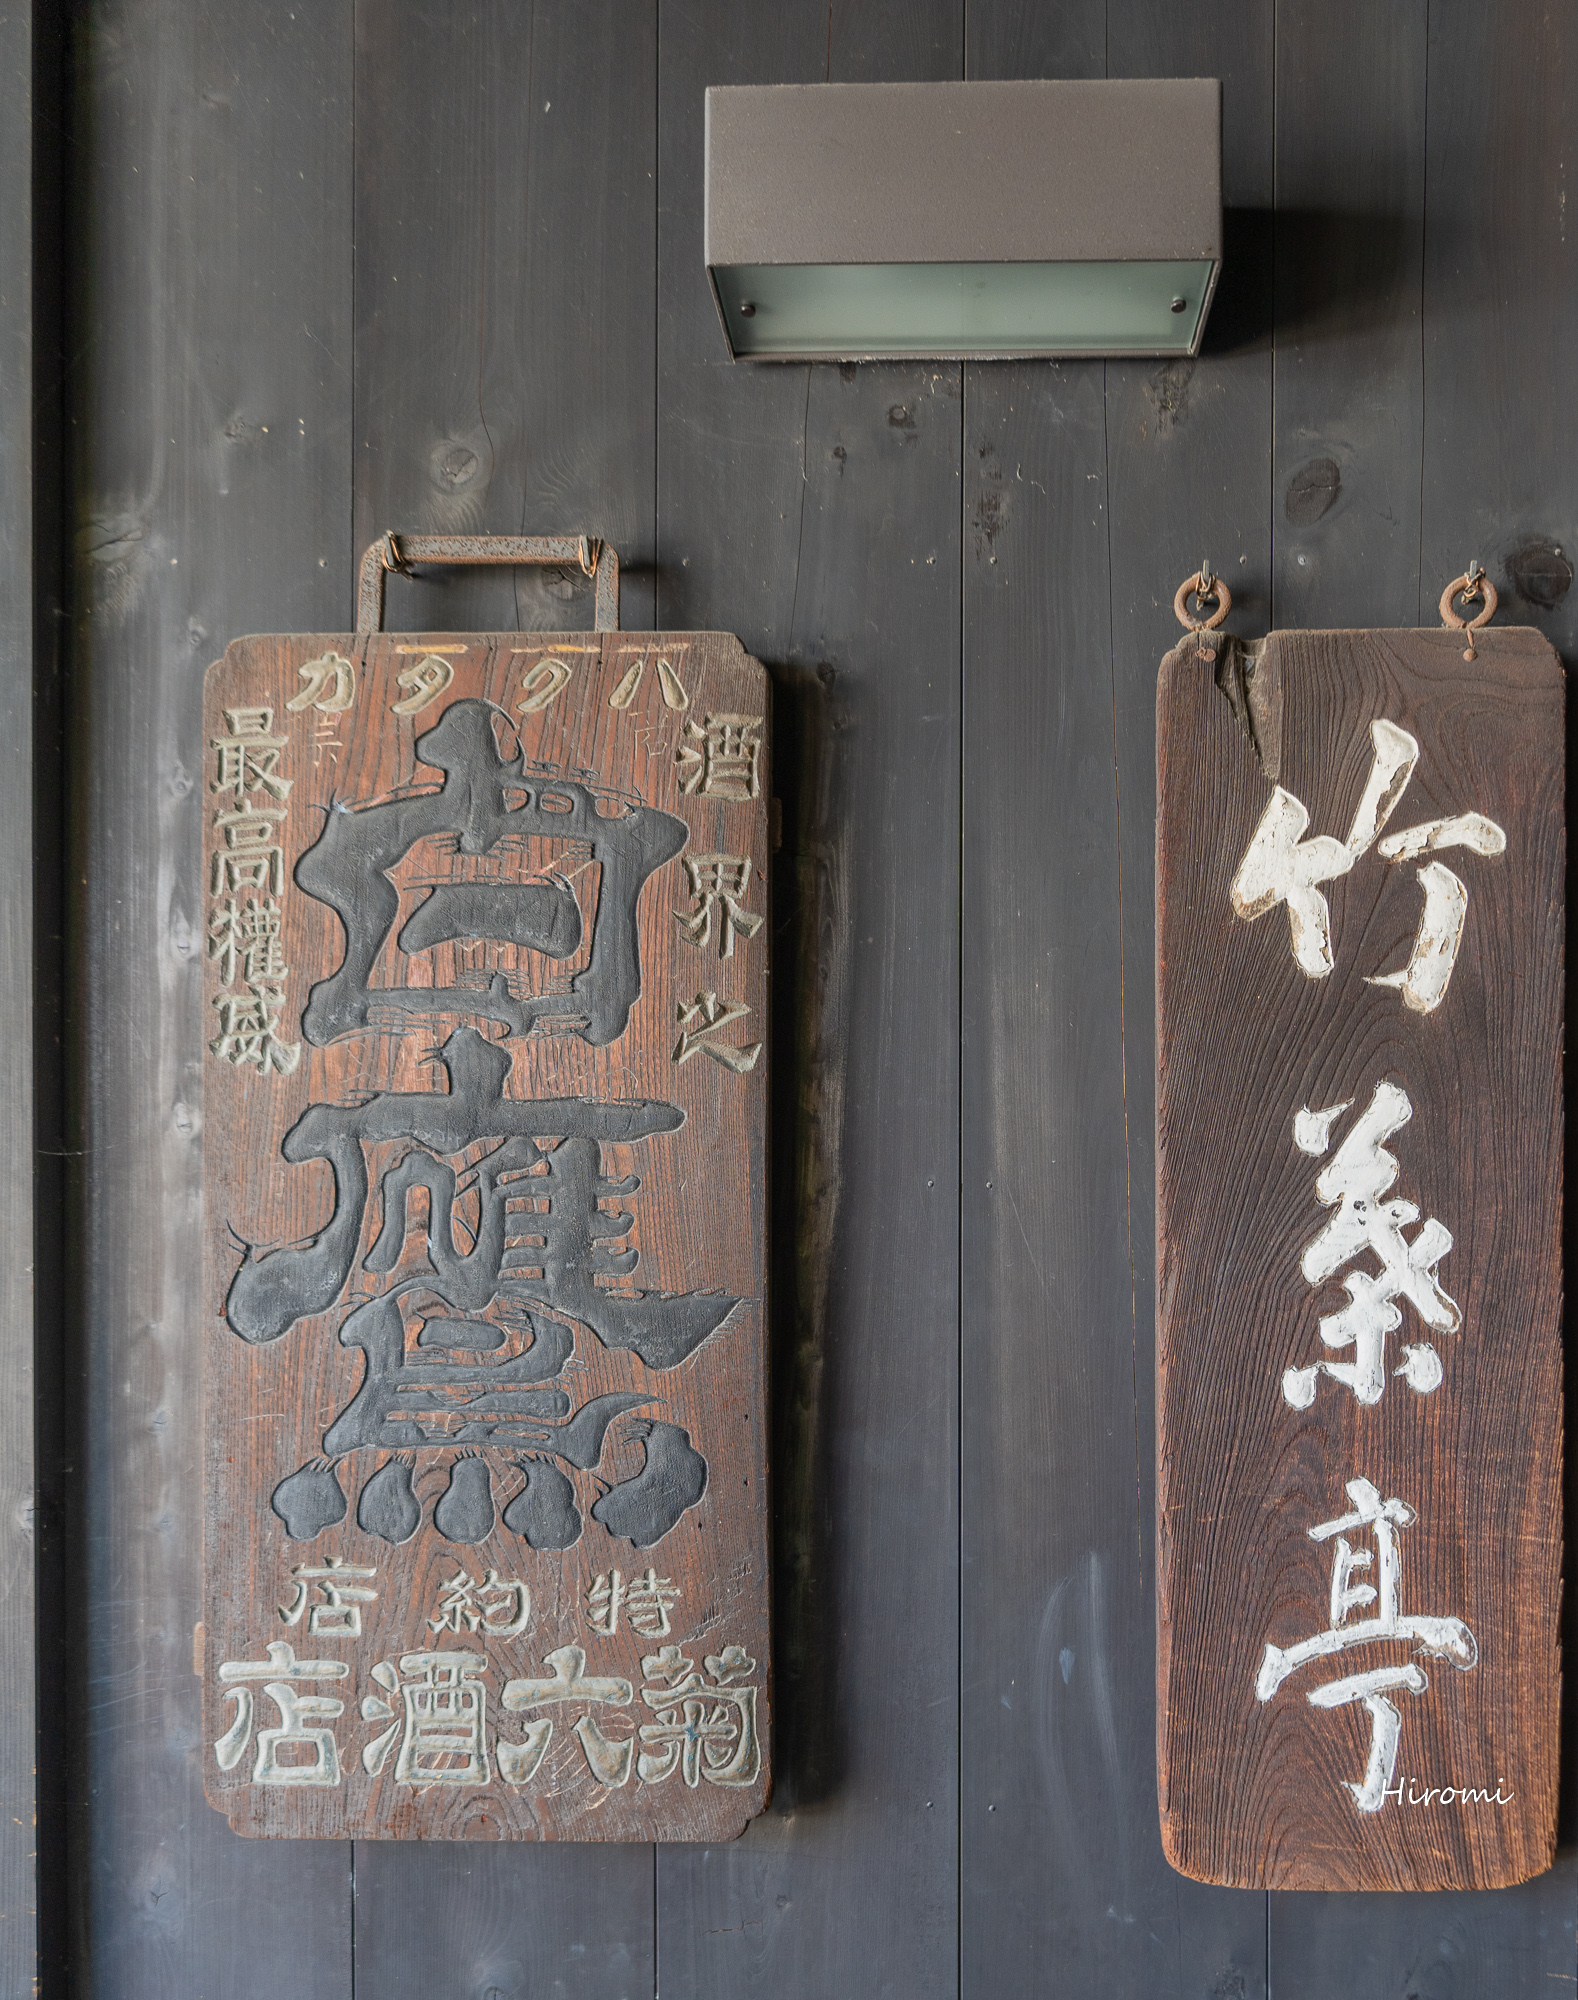 ハクタカ
酒界之
最高權威
白鷹
特約店
菊六酒店
竹葉亭
Hiromi